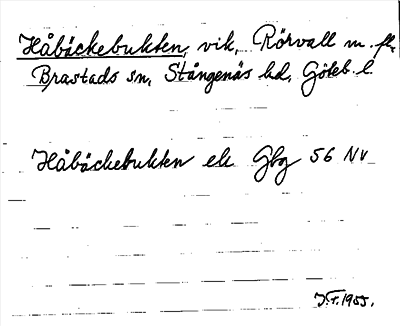 Håbäckebukten, vik, Rörvall m. fl.
Brastads sn, Stångenäs hd, Göteb. l.
Håbäckebukten ek Gbg 56 NV
1955.